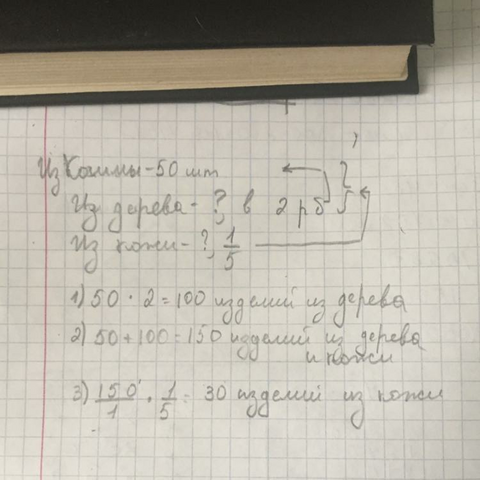 Из Коммы-50 шт
Из дерева-?, в 2 р б
Из кожи-?, 1/5
1) 50 · 2 = 100 изделий из дерева
2) 50 + 100 = 150 изделий из дерева
и кожи
3) 150/1 · 1/5 = 30 изделий из кожи